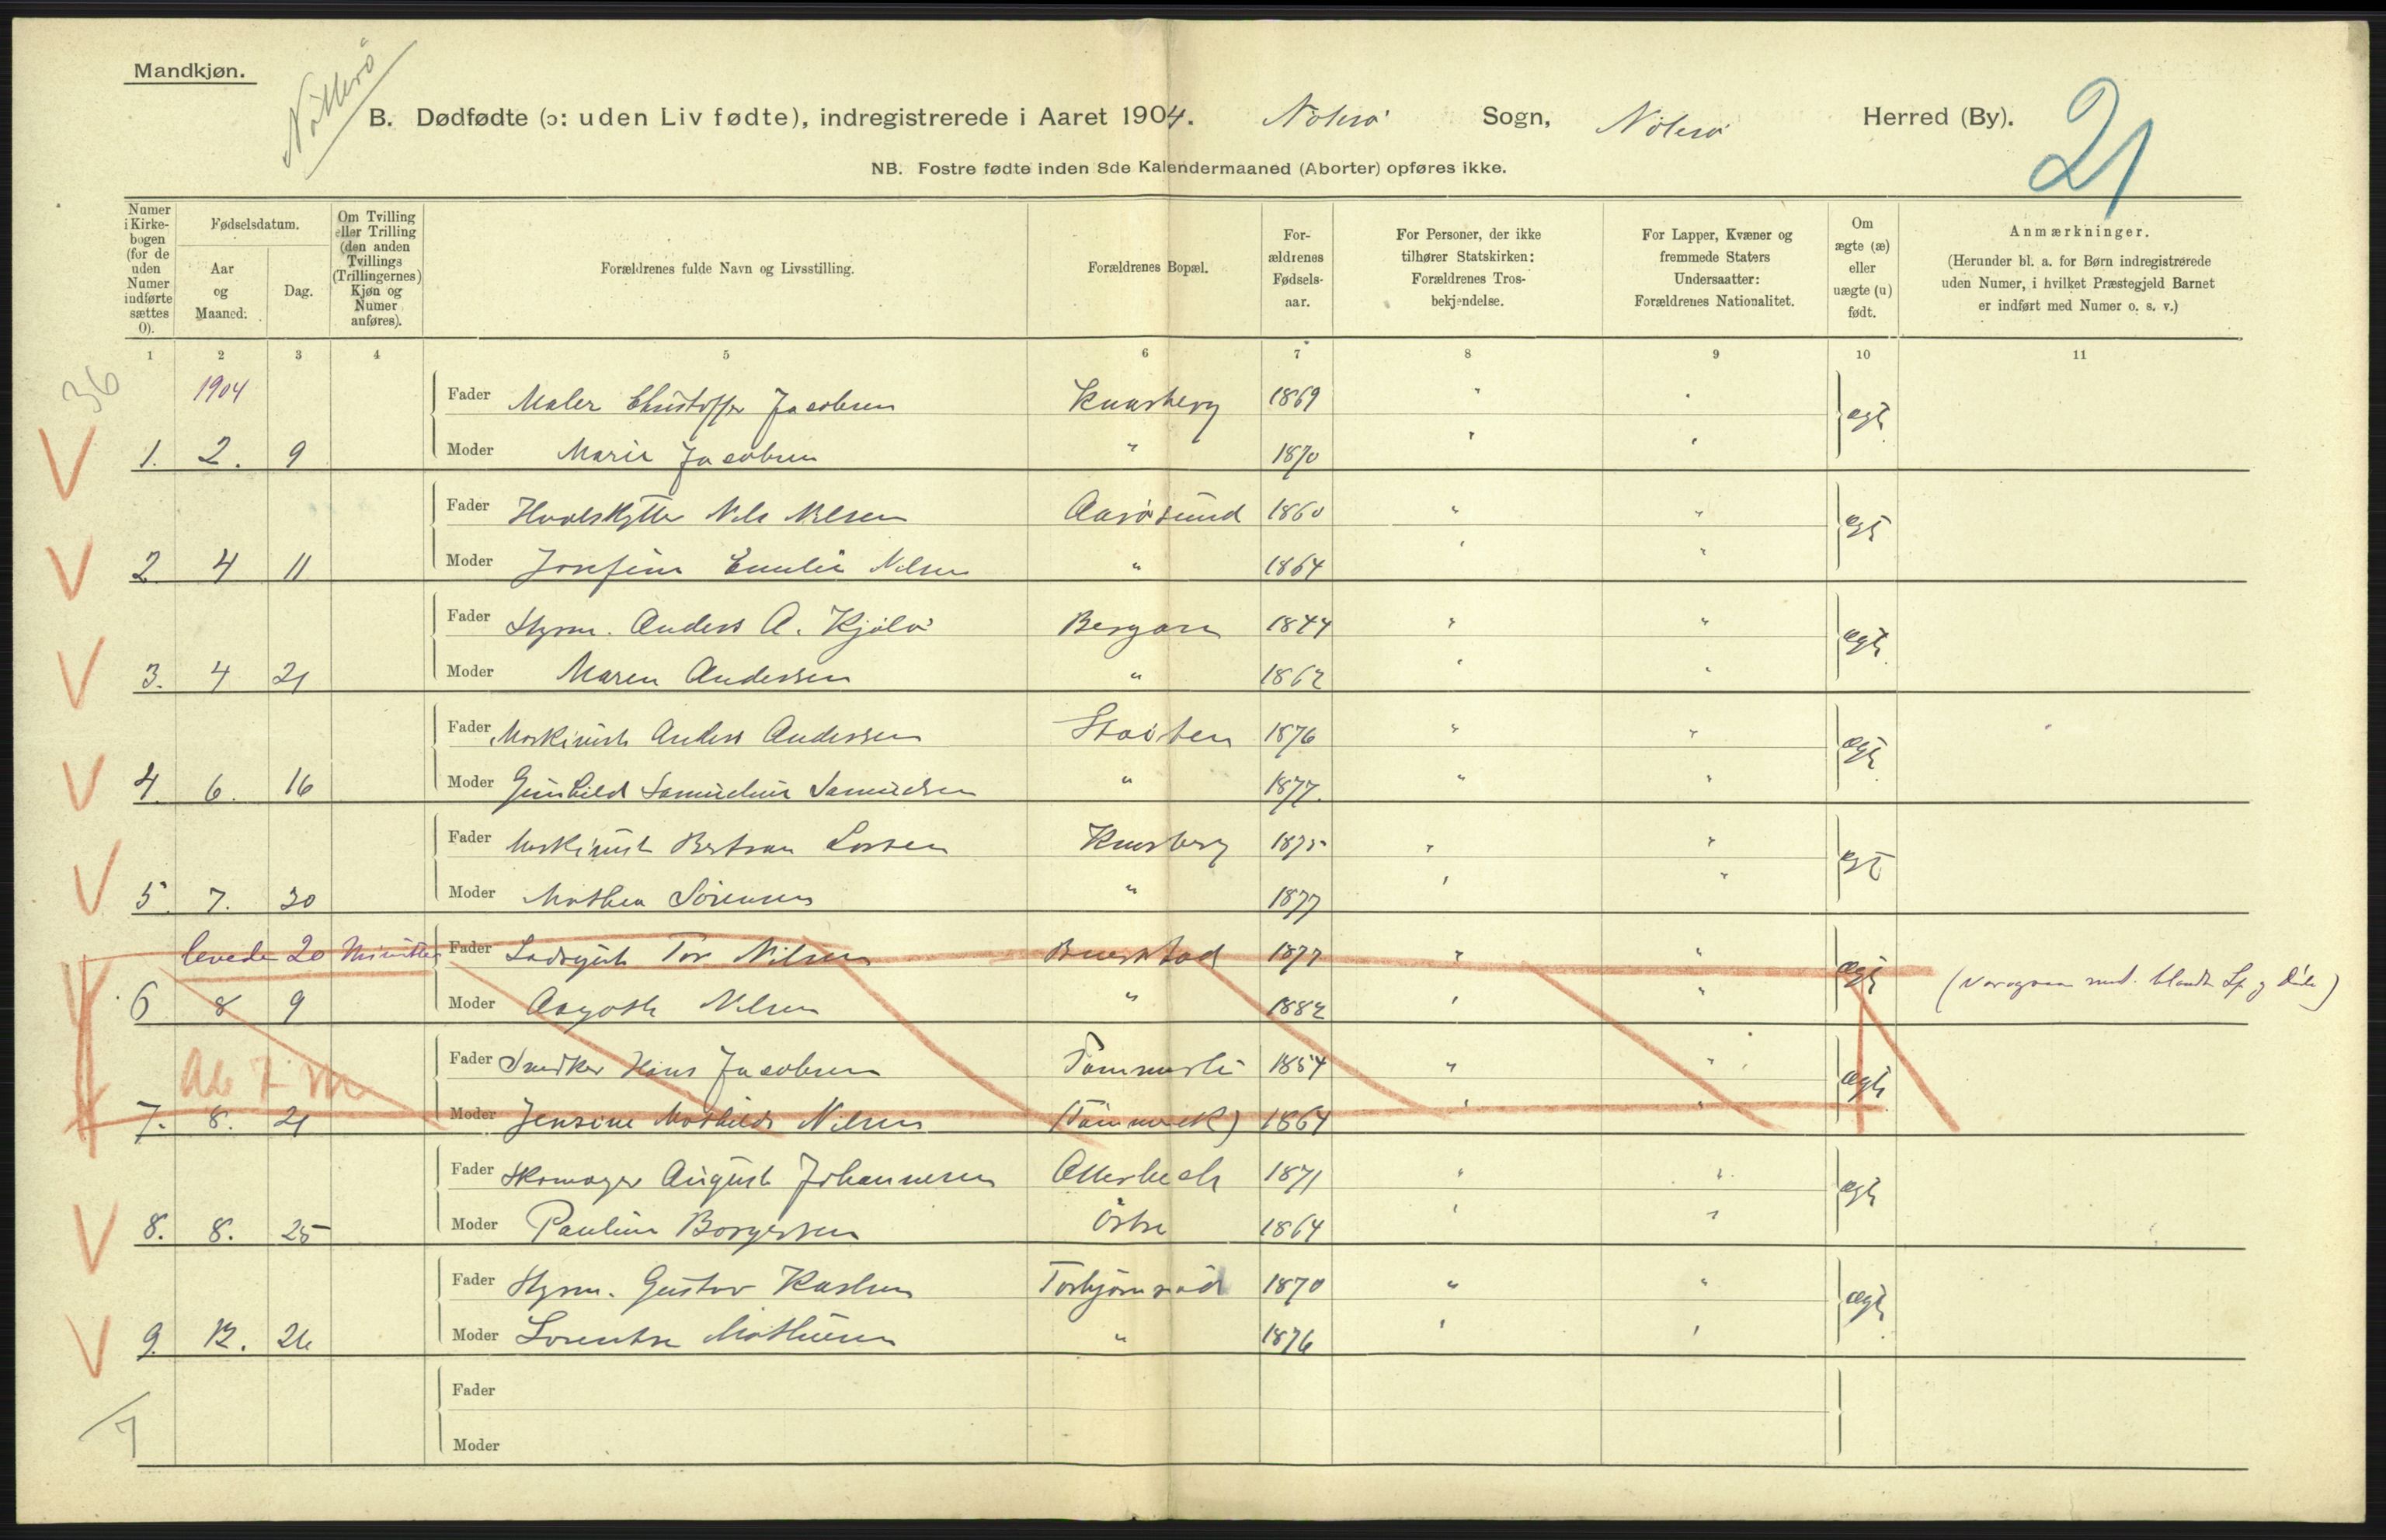 Mandkjøn.
Nötterö
B. Dødfødte (ɔ: uden Liv fødte), indregistrerede i Aaret 1904. Nöterö Sogn, Nöterö Herred (By).
21
NB. Fostre fødte inden 8de Kalendermaaned (Aborter) opføres ikke.
Numer i Kirkebogen (for de uden Numer indførte sættes 0).
Fødselsdatum.
Aar og Maaned.
Dag.
Om Tvilling eller Trilling (den anden Tvillings (Trillingernes) Kjøn og Numer anføres).
Forældrenes fulde Navn og Livsstilling.
Forældrenes Bopæl.
Forældrenes Fødselsaar.
For Personer, der ikke tilhører Statskirken: Forældrenes Trosbekjendelse.
For Lapper, Kvæner og fremmede Staters Undersaatter: Forældrenes Nationalitet.
Om ægte (æ) eller uægte (u) født.
Anmærkninger.
(Herunder bl. a. for Børn indregistrerede uden Numer, i hvilket Præstegjeld Barnet er indført med Numer o. s. v.)
1 2 3 4 5 6 7 8 9 10 11
36
1904 Fader Maler Christoffer Jacobsen Knarberg 1869 " " ægt
1. 2. 9 Moder Marie Jacobsen " 1870 " "
Fader Hvalskytter Nils Nilsen Aarösund 1860 " " ægt
2 4 11 Moder Josefine Emilie Nilsen " 1864 " "
Fader Styrm. Anders A. Kjölö Bergan 1844 " " ægt
3. 4 21 Moder Maren Andersen " 1862 " "
Fader Maskinist Anders Andersen 1876 " " ægt
4. 6. 16 Moder Gunhild Samueline Samuelsen " 1877. " "
Fader Maskinist Bertran Larsen Knarberg 1875 " " ægt
5. 7. 30 Moder Mathea Sörensen " 1877 " "
levede 20 Minutter Fader Tor Nilsen Buerstad 1877 " " ægt
6 8 9 Moder Aagoth Nilsen " 1882 " "
Fader Snedker Hans Jacobsen 1854 " " ægt
Ab 7 m
7. 8. 21 Moder Jensine Mathilde Nilsen 1864 " "
Fader Skomager August Johannesen Otterbech 1871 " " ægt
8. 8. 25 Moder Pauline Borgersen Östre 1864 " "
Fader Styrm. Gustav Karlsen Torbjörnröd 1870 " " ægt
9. 12. 26 Moder Lorentse Mathisen " 1876 " "
Fader
7
Moder